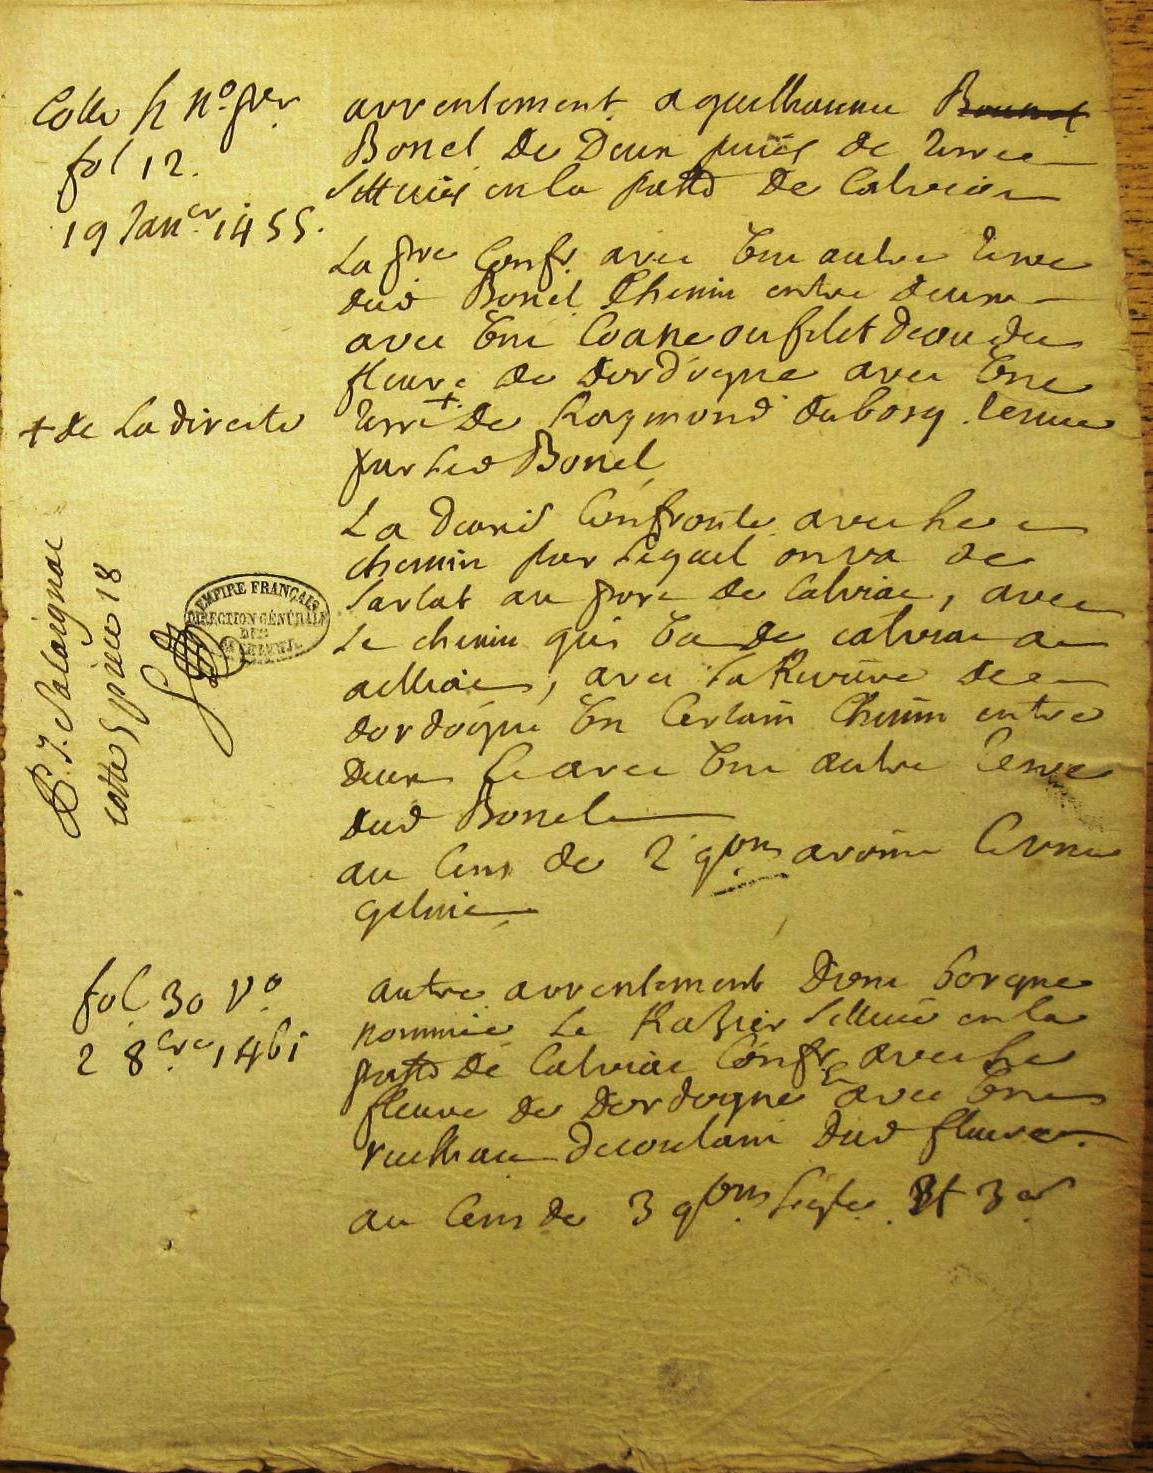 Cotte h n° p.er
fol 12.
19 Jan.er 1455.
arrentement a guilhaume Bounel
Bonel de Deux pieces de terre
Sittuées en la paro de Calviac
La p.re Confr. avec Une autre terre
dud Bonel Chemin entre deux
avec Une Coane ou filet deau du
fleuve de Dordogne avec Une
+ de La directe
terre + de Raymond dubosq tenue
par Led Bonel
La Deux.e Confronte avec le
chemin par lequel on va de
Sarlat au port de Calviac, avec
Le chemin qui Va de calviac a
ailhac, avec La Riviere de
dordogne Un Certain Chemin entre
deux Et avec Une autre terre
dud Bonel
au Cens de 2 q.ons avoine Et Une
geline
P. J. Salaignac
cotte S piece 18
EMPIRE FRANÇAIS
DIRECTION GÉNÉRALE
DES
ARCHIVES
fol 30 V°
2 8bre 1461
autre arrentement Dune borgne
nommée Le Razier Sittuée en la
paro de Calviac Confr. avec le
fleuve de Dordogne Et avec Un
ruilheau decoulant dud fleuve.
au Cens de 3 q.ons Seigle. Et 3 d